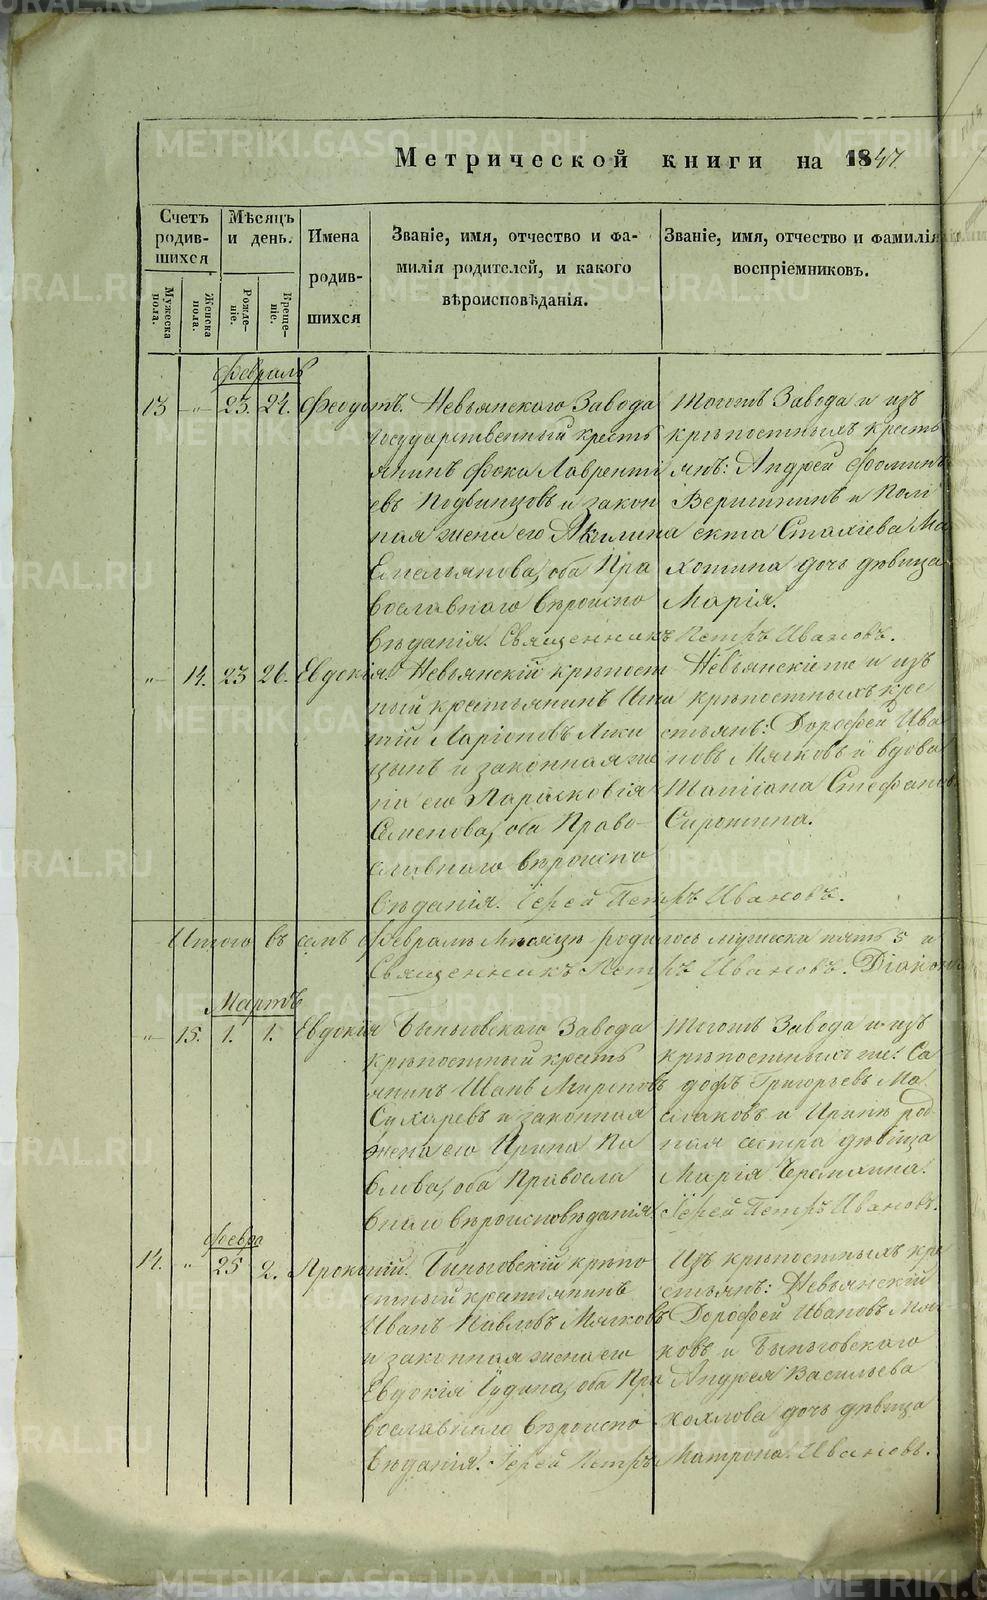 Метрической книги на 1847
Счетъ родив- шихся
Мѣсяцъ и день.
Имена родив- шихся
Званіе, имя, отчество и фа- милія родителей, и какого вѣроисповѣданія.
Званіе, имя, отчество и фамилія воспріемниковъ.
Мужеска пола.
Женска пола.
Рожде- ніе.
Креще- ніе.
Февраль
13 -„- 23. 24. Феодотъ.
Невьянскаго Завода
государственный кресть
янинъ Фока Лавренті
евъ Подвинцовъ и закон
ная жена его Акилина
Емельянова, оба Пра
вославнаго вѣроиспо
вѣданія. Священникъ Петръ Ивановъ.
Тогожъ Завода и изъ
крѣпостныхъ кресть
янъ: Андрей Фоминъ
Вершининъ и Полі
екта Стахіева Ма
хотина дочь дѣвица
Марія.
„- 14. 23 26. Евдокія.
Невьянскій крѣпост
ный крестьянинъ Игна
тій Ларіоновъ Лики
цынъ и законная же
на его Парасковія
Семенова, оба Право-
славнаго вѣроиспо
вѣданія. Іерей Петръ Ивановъ.
Невьянскіе же и изъ
крѣпостныхъ кре
стьянъ: Дорофей Ива
новъ Мягковъ и вдова
Татіана Стефанов
Сиротина.
Итого въ семъ Февралѣ Мѣсяцѣ родилось мужеска пять 5 и
Священникъ Петръ Ивановъ. Діаконъ
Мартъ
„- 15. 1. 1. Евдокія
Быньговскаго Завода
крѣпостный кресть
янинъ Иванъ Мироновъ
Сухаревъ и законная
жена его Ирина Па
влова, оба Правосла
внаго вѣроисповѣданія.
Тогожъ Завода и изъ
крѣпостныхъ же: Са
дофъ Григорьевъ Ма
слаковъ и Иринѣ род
ная сестра дѣвица
Марія
Іерей Петръ Ивановъ.
Февра
14. „ 25 2. Прокопій.
Быньговскій крѣпо
стный крестьянинъ
Иванъ Павловъ Мягковъ
и законная жена его
Евдокія Іудина, оба Пра
вославнаго вѣроиспо
вѣданія. Іерей Петръ Ивановъ.
Изъ крѣпостныхъ кре
стьянъ: Невьянскій
Дорофей Ивановъ Мяг
ковъ и Быньговскаго
Андрея Васильева
Хохлова дочь дѣвица
Матрона.
METRIKI.GASO-URAL.RU